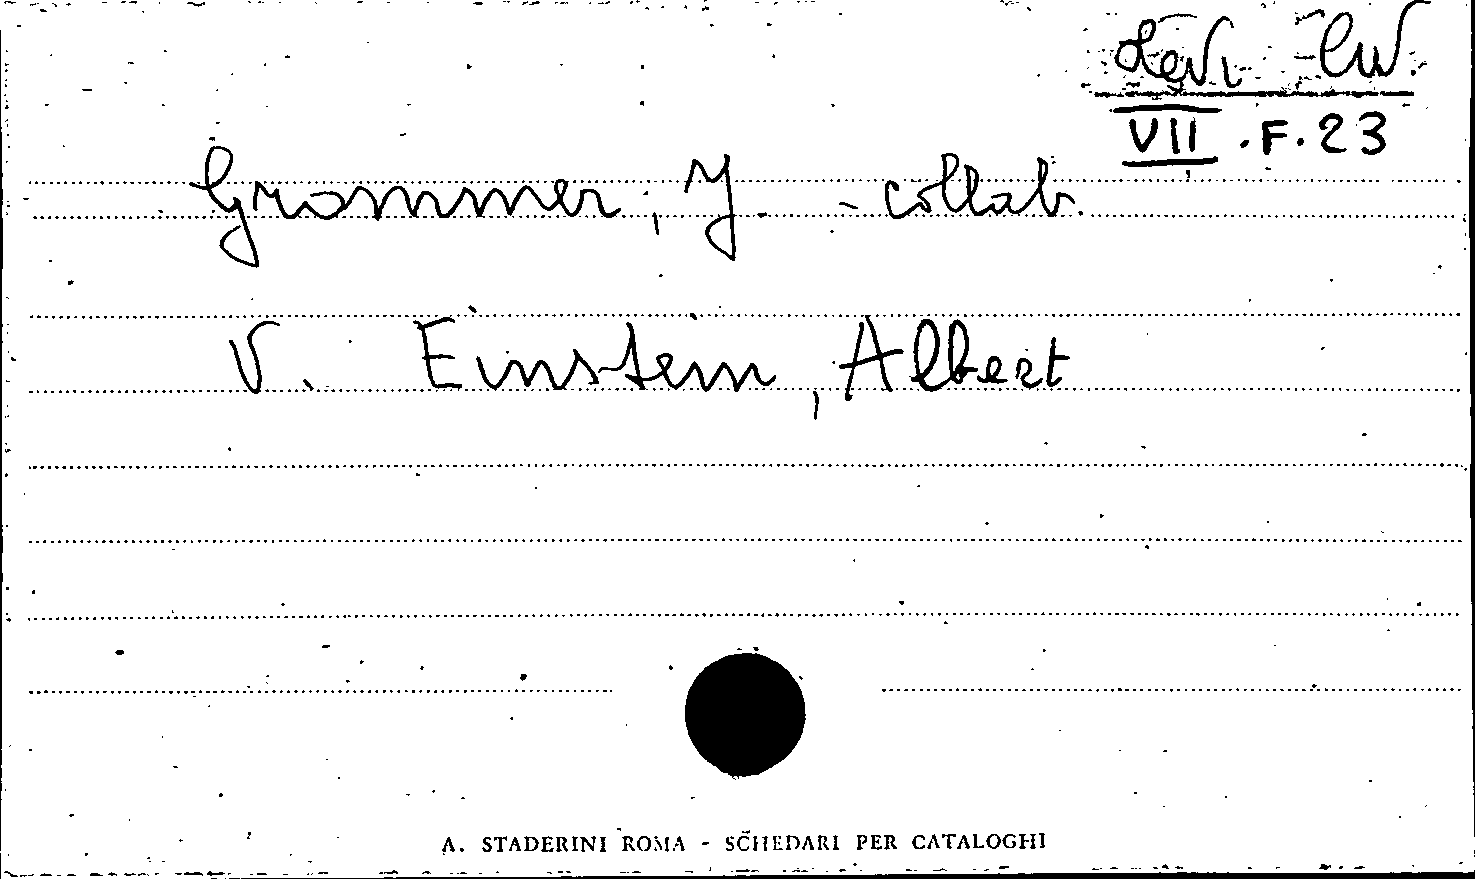 Levi - Civ.
VII . F. 23
Grommer, J. - collab.
V. Einstein, Albert
A. STADERINI ROMA - SCHEDARI PER CATALOGHI